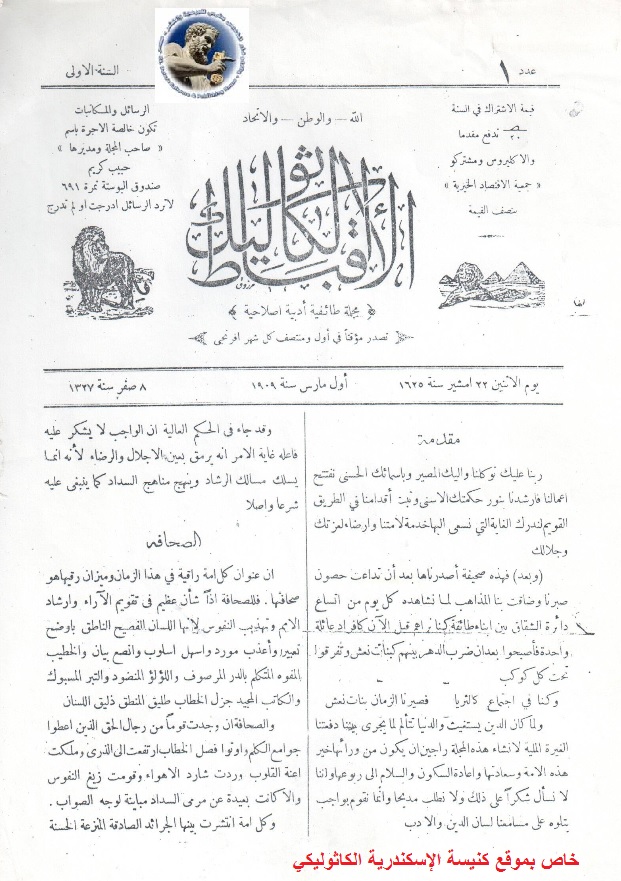 عدد ١
السنة الاولى
قيمة الاشتراك في السنة
تدفع مقدما
والاكليروس ومشتركو
« جمعية الاقتصاد الخيرية »
بنصف القيمة
الله — والوطن — والاتحاد
الرسائل والمكاتبات
تكون خالصة الاجرة باسم
« صاحب المجلة ومديرها
حبيب كريم
صندوق البوستة نمرة ٦٩١
لا ترد الرسائل ادرجت او لم تدرج
الأقباط الكاثوليك
﴿ مجلة طائفية أدبية اصلاحية ﴾
تصدر مؤقتاً في أول ومنتصف كل شهر افرنجي
يوم الاثنين ٢٢ امشير سنة ١٦٢٥
أول مارس سنة ١٩٠٩
٨ صفر سنة ١٣٢٧
مقدمة
ربنا عليك توكلنا واليك المصير وباسمائك الحسنى نفتتح
اعمالنا فارشدنا بنور حكمتك الاسنى وثبت أقدامنا في الطريق
القويم لندرك الغاية التي نسعى اليها خدمة لامتنا وارضاء لعزتك
وجلالك
(وبعد) فهذه صحيفة أصدرناها بعد أن تداعت حصون
صبرنا وضاقت بنا المذاهب لما نشاهده كل يوم من اتساع
دائرة الشقاق بين ابناء طائفة كنا نراهم قبل الآن كافراد عائلة
واحدة فأصبحوا بعد ان ضرب الدهر بينهم كبنات نعش وتفرقوا
تحت كل كوكب
وكنا في اجتماع كالثريا فصيرنا الزمان بنات نعش
ولما كان الدين يستغيث والدنيا تتألم لما يجرى بيننا دفعتنا
الغيرة الملية لانشاء هذه المجلة راجين ان يكون من ورائها خير
هذه الامة وسعادتها واعادة السكون والسلام الى ربوعها واننا
لا نسأل شكراً على ذلك ولا نطلب مديحا وانما نقوم بواجب
يتلوه على مسامعنا لسان الدين والادب
وقد جاء في الحكم العالية ان الواجب لا يشكر عليه
فاعله غاية الامر انه يرمق بعين الاجلال والرضاء لأنه انما
يسلك مسالك الرشاد وينهج مناهج السداد كما ينبغى عليه
شرعا واصلا
الصحافه
ان عنوان كل امة راقية في هذا الزمان وميزان رقيها هو
صحافتها . فللصحافة اذاً شأن عظيم في تقويم الآراء وارشاد
الامم وتهذيب النفوس لانها اللسان الفصيح الناطق باوضح
تعبير وأعذب مورد واسهل اسلوب وانصع بيان والخطيب
المفوه المتكلم بالدر المرصوف واللؤلؤ المنضود والتبر المسبوك
والكاتب المجيد جزل الخطاب طليق المنطق ذليق اللسان
والصحافة ان وجدت قوماً من رجال الحق الذين اعطوا
جوامع الكلم واوتوا فصل الخطاب ارتفعت الى الذرى وملكت
اعنة القلوب وردت شارد الاهواء وقومت زيغ النفوس
والا كانت بعيدة عن مرمى السداد مباينة لوجه الصواب .
وكل امة انتشرت بينها الجرائد الصادقة المنزعة الحسنة
خاص بموقع كنيسة الإسكندرية الكاثوليكي